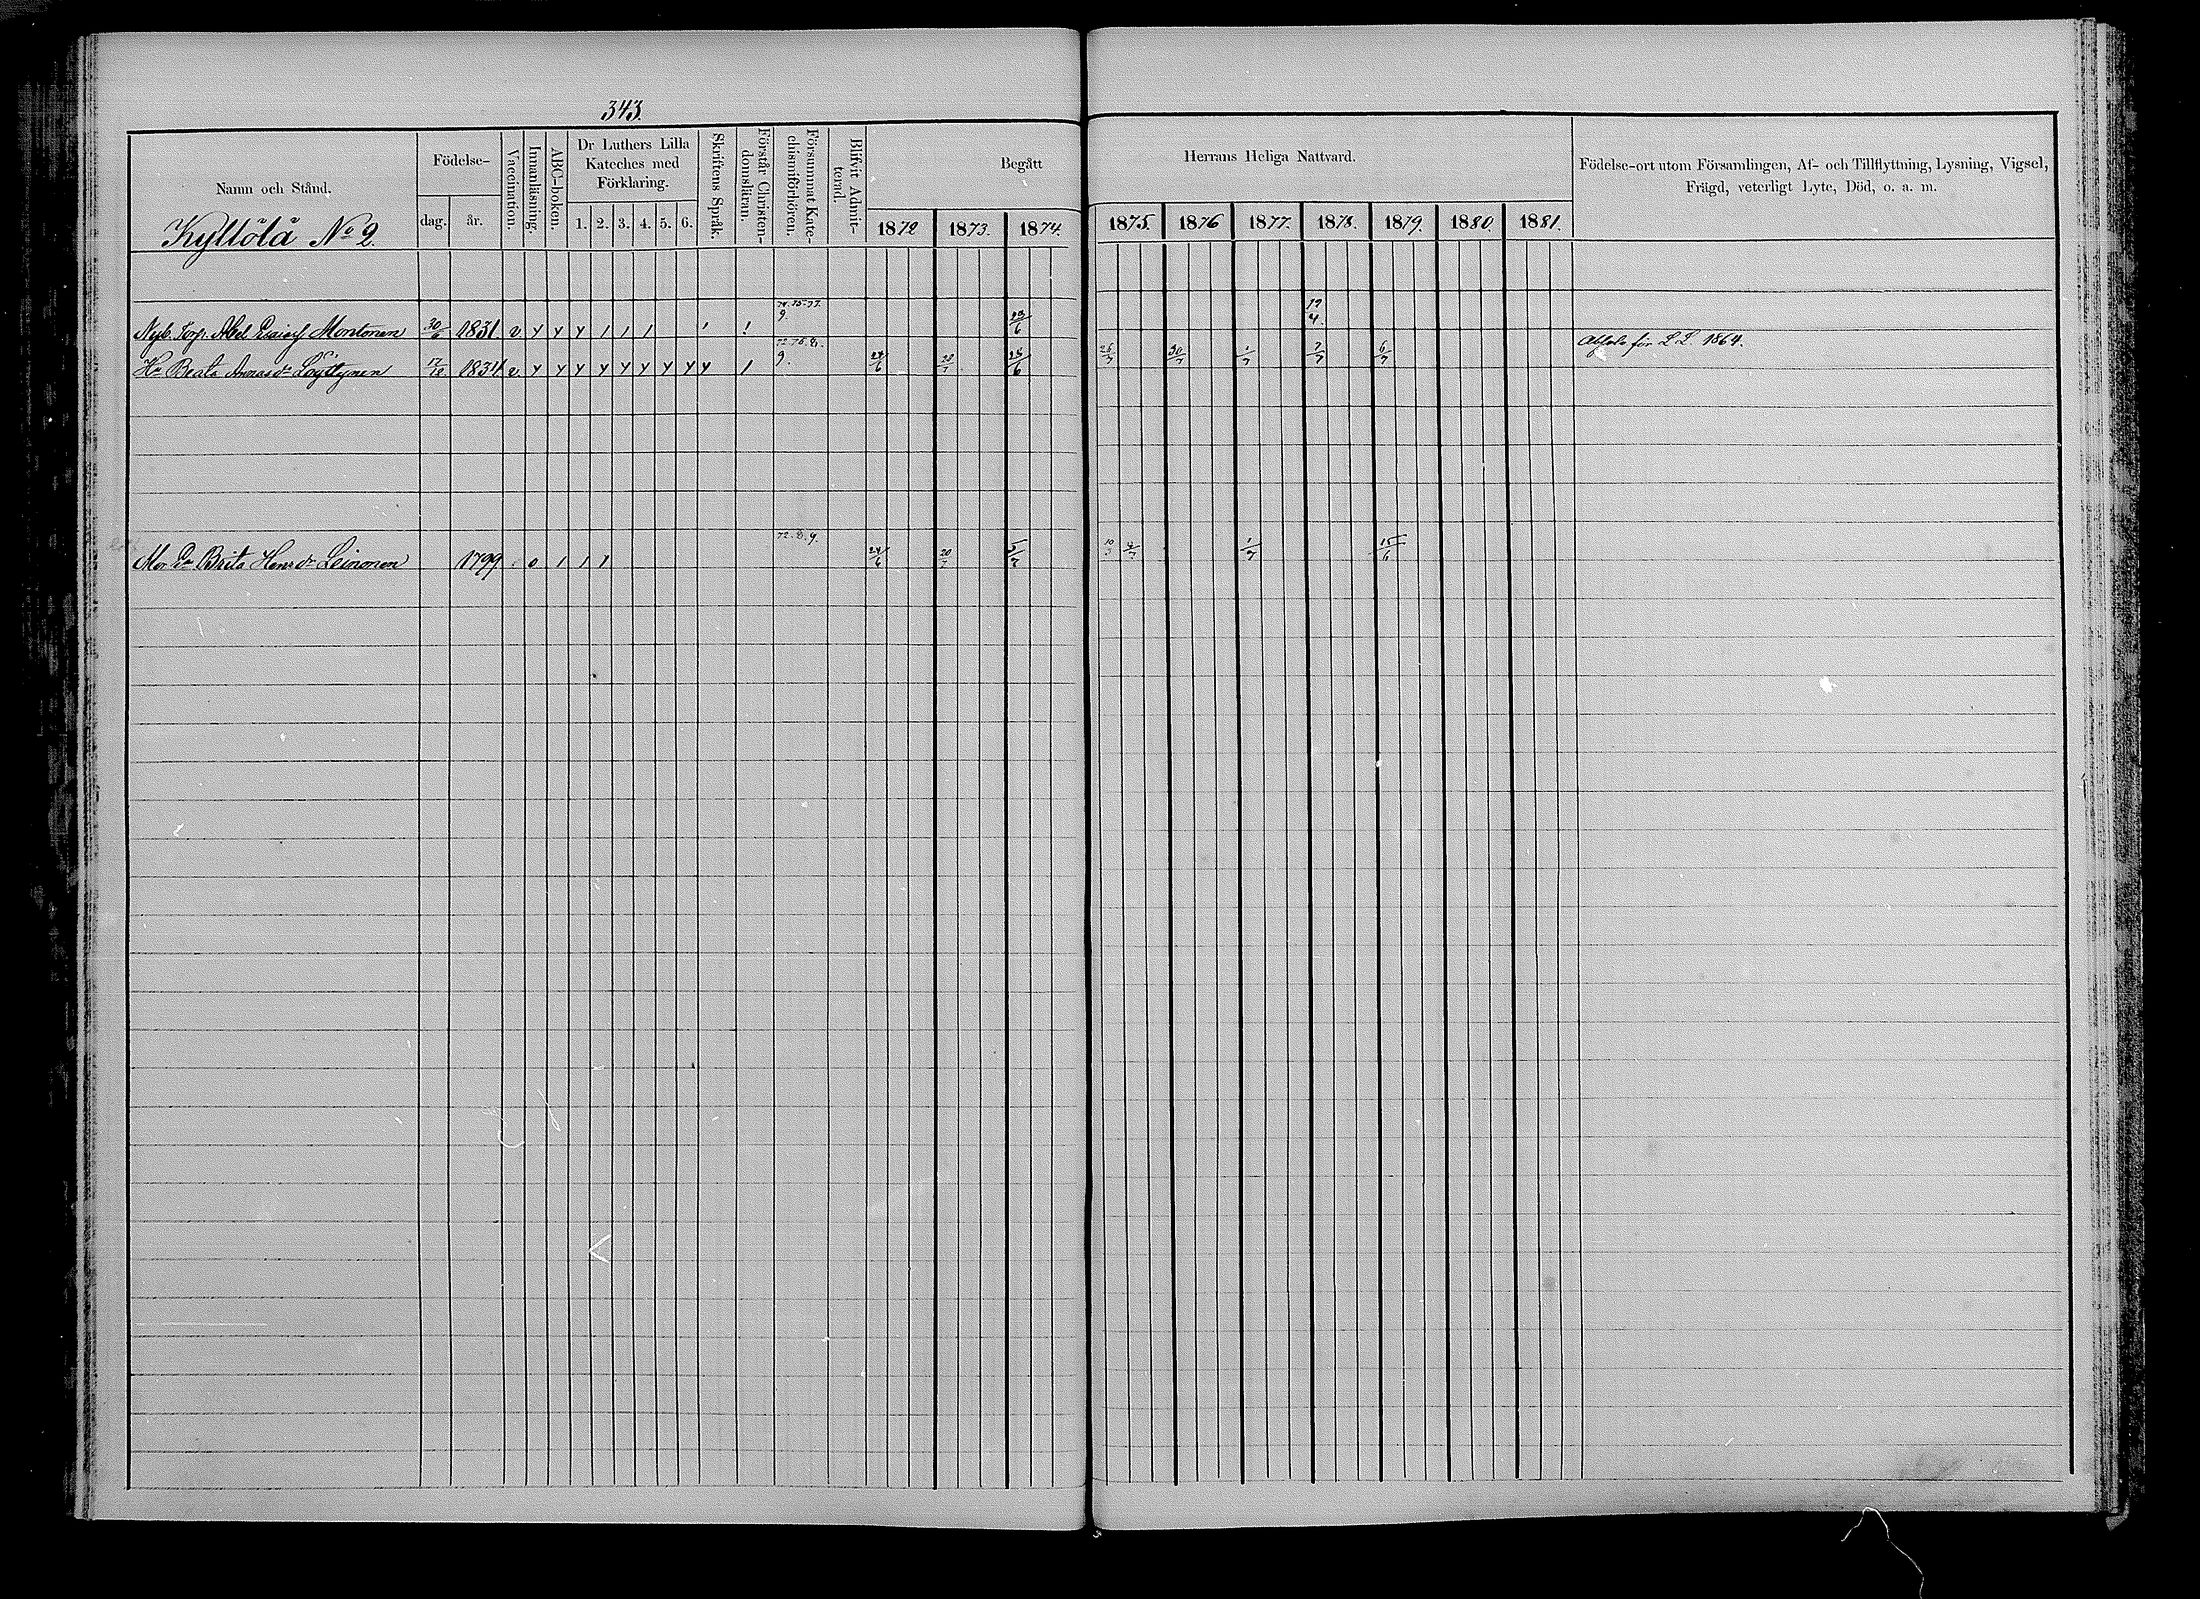 343.
Namn och Stånd.
Födelse-
dag.
år.
Vaccination.
Innanläsning.
ABC-boken.
Dr Luthers Lilla
Kateches med
Förklaring.
1. 2. 3. 4. 5. 6.
Skriftens Språk.
Förstår Christen-
domsläran.
Försummat Kate-
chismiförhören.
Blifvit Admit-
terad.
Begått
1872 1873. 1874.
Herrans Heliga Nattvard.
1875. 1876 1877. 1878. 1879. 1880. 1881.
Födelse-ort utom Församlingen, Af- och Tillflyttning, Lysning, Vigsel,
Frägd, veterligt Lyte, Död, o. a. m.
Kyllölä No 2
74. 75-77. 19/4.
9.
Abel Montonen 30/6 1831. v. y y y 1 1 1 1 1 23/6
72. 76. 8.
Hu Beata Löyttynen 17/12 1834 v. y y y y y y y y y 1 9. 24/6 20/7 28/6 25/7 30/7 1/7 7/7 6/7 för L. L. 1864.
72. 8. 9.
Mor Brita Henrdr Leinonen 1799 o 1 1 1 24/6 20/7 5/7 10/3 4/7 1/7 15/6